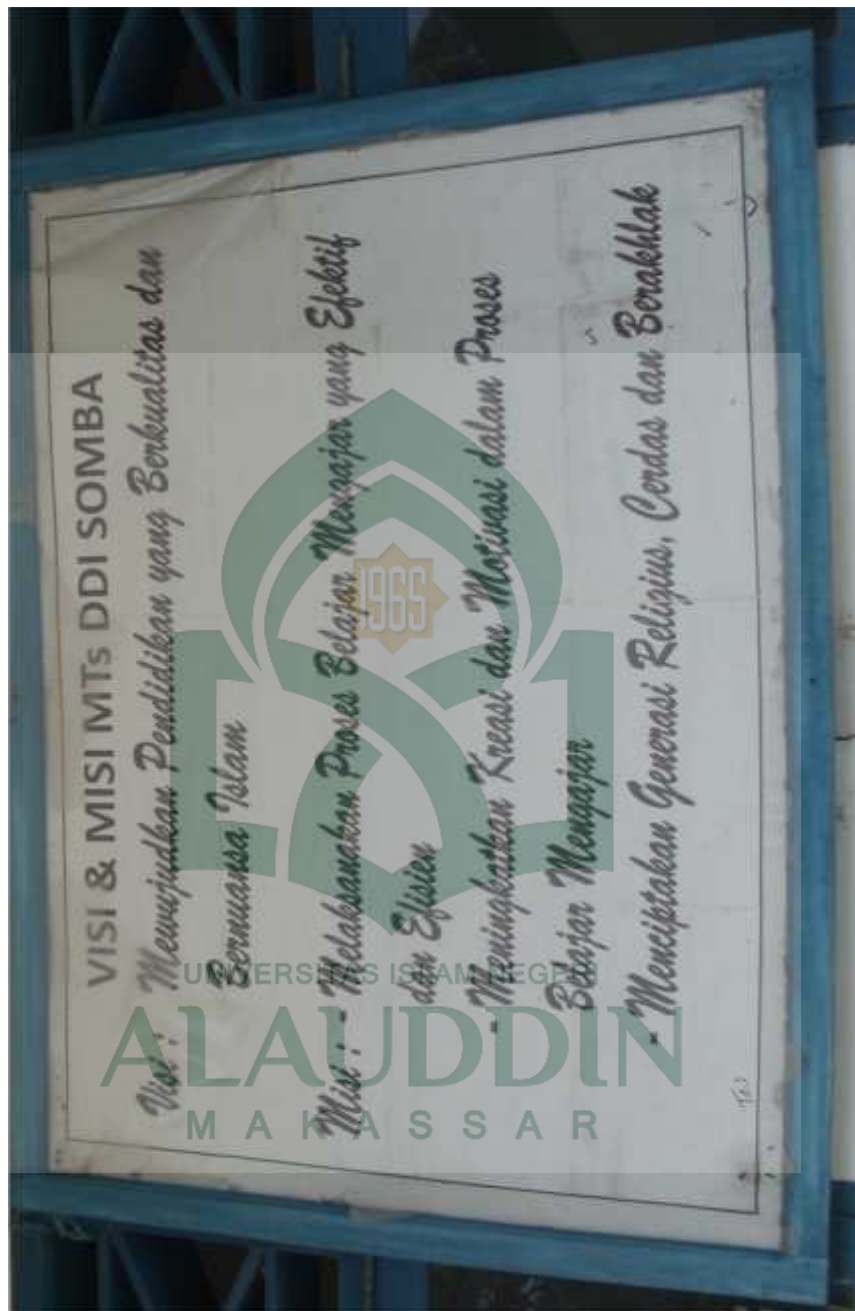 VISI & MISI MTs DDI SOMBA
Visi : Mewujudkan Pendidikan yang Berkualitas dan
Bernuansa Islam
Misi : - Melaksanakan Proses Belajar Mengajar yang Efektif
dan Efisien
- Meningkatkan Kreasi dan Motivasi dalam Proses
Belajar Mengajar
- Menciptakan Generasi Religius, Cerdas dan Berakhlak
1965
UNIVERSITAS ISLAM NEGERI
ALAUDDIN
MAKASSAR